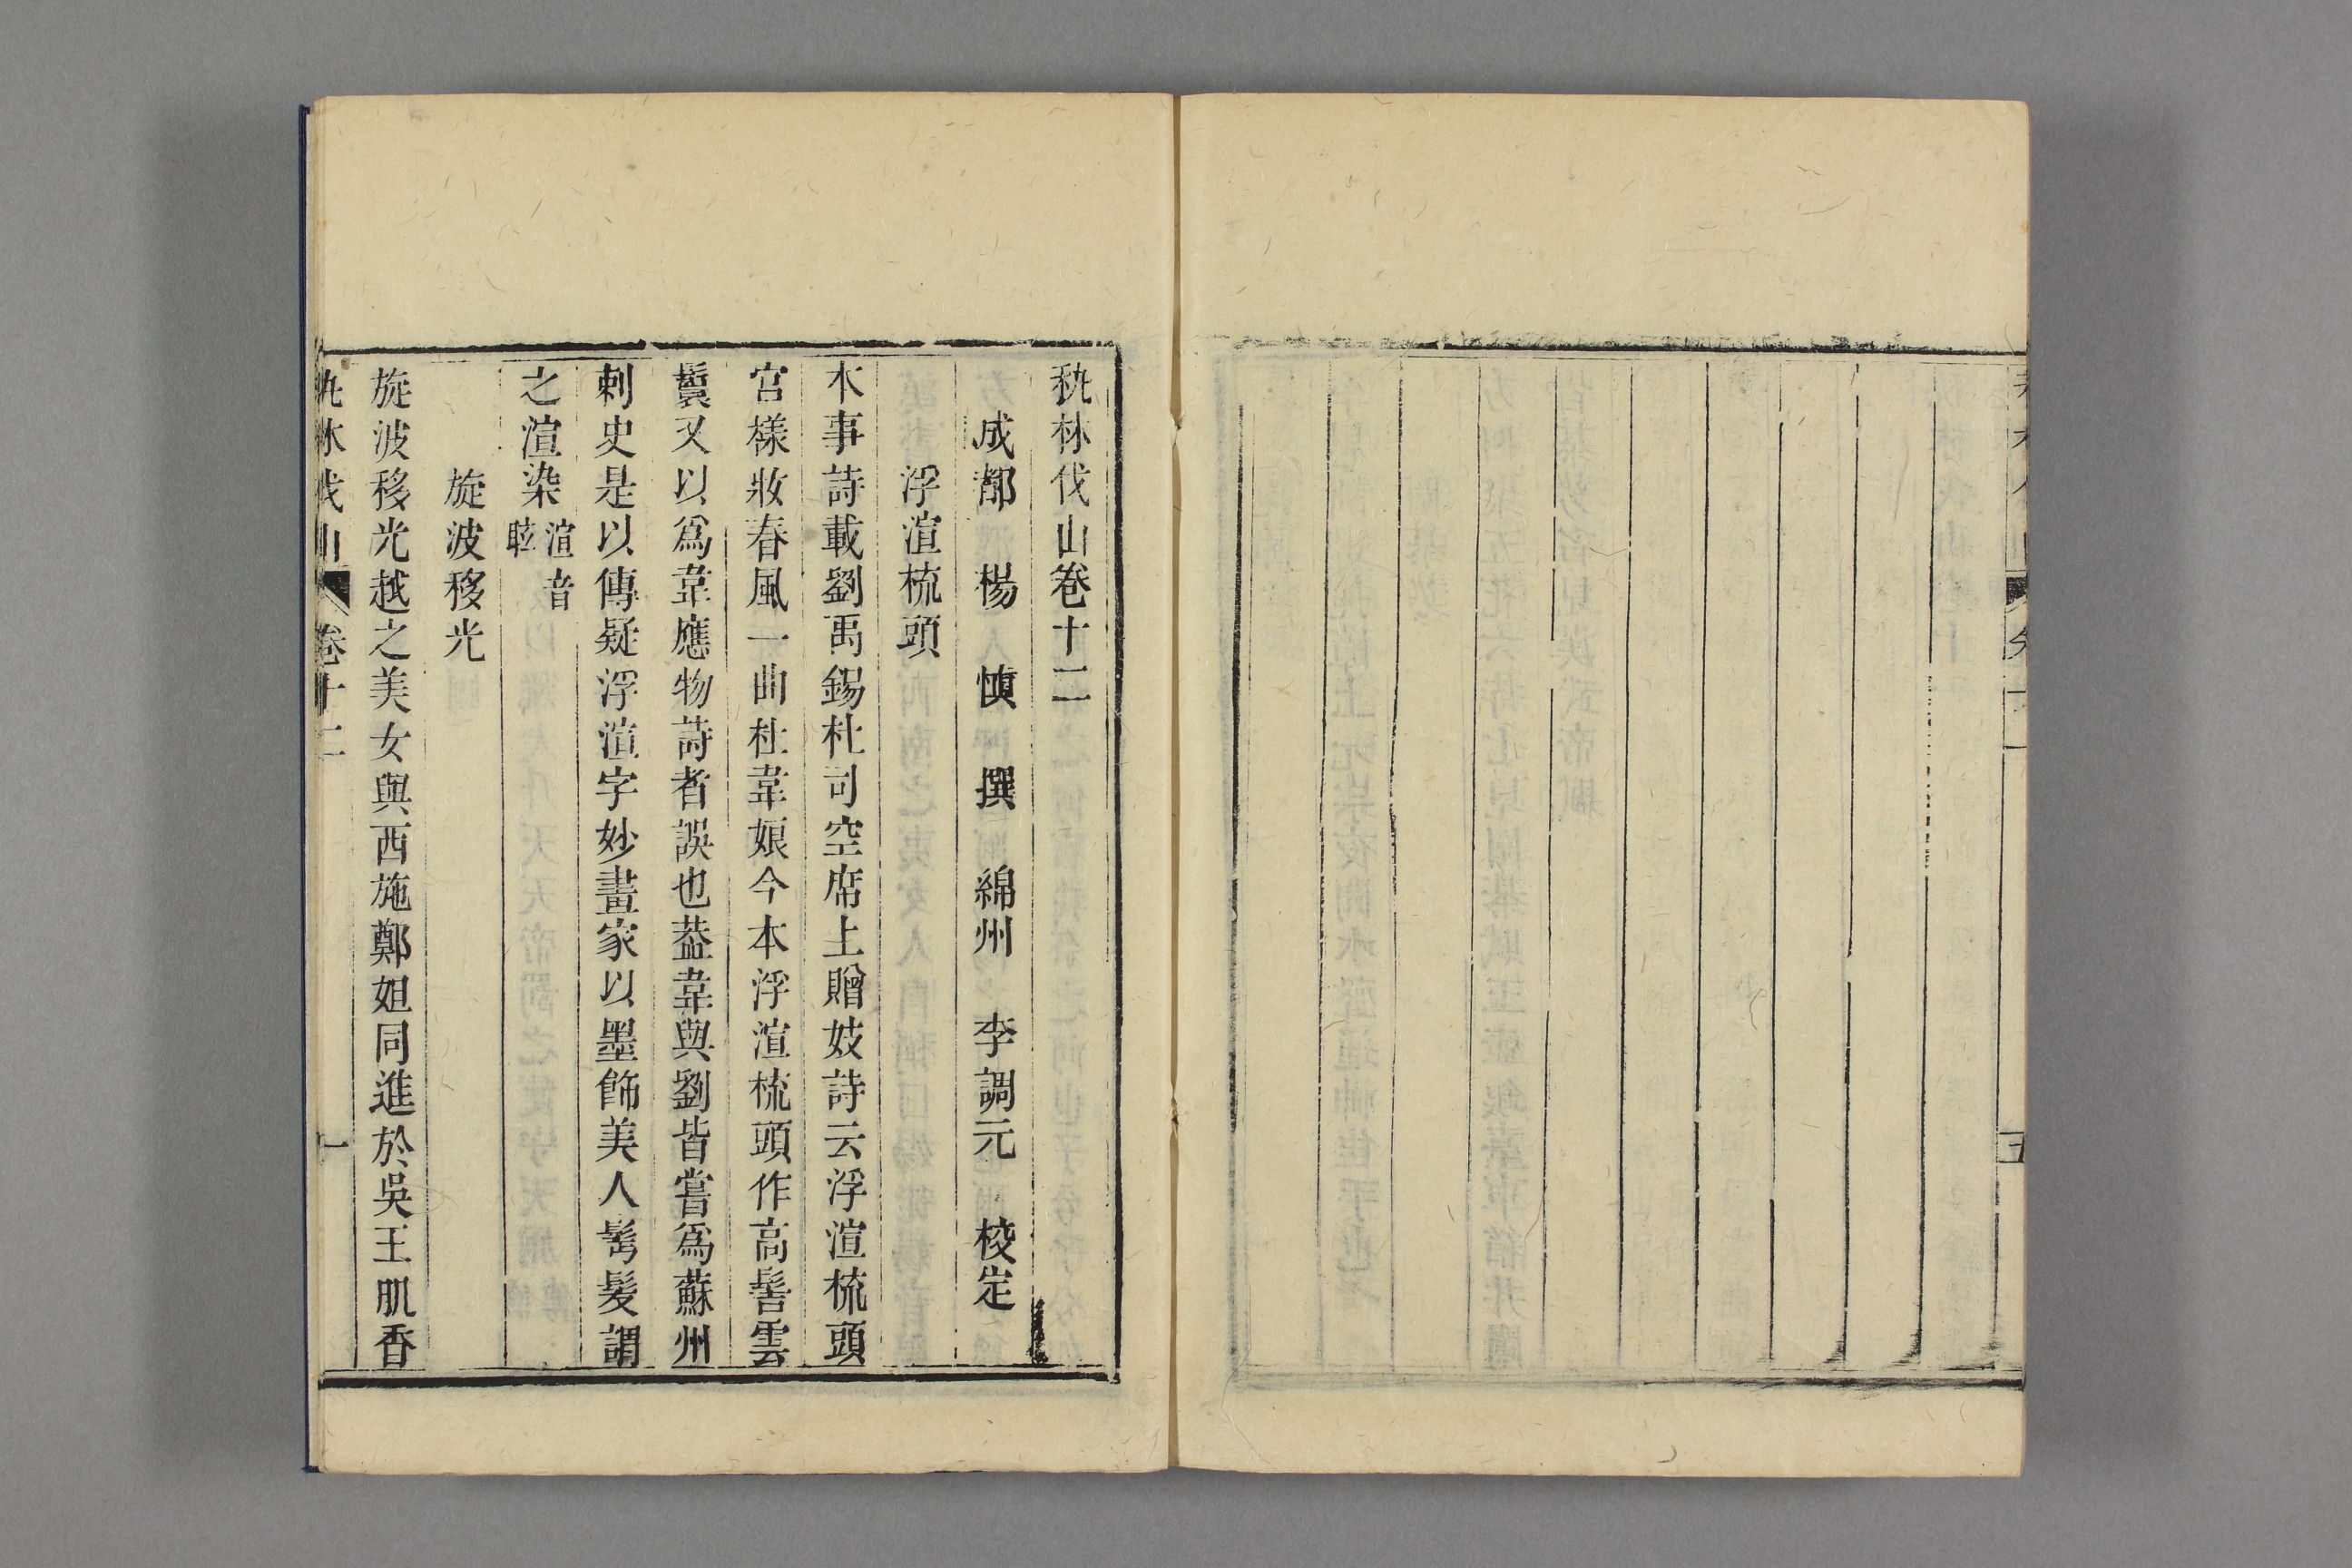 秇林伐山卷十二
成都 楊 慎 撰 綿州 李調元 校定
浮渲梳頭
木事詩載劉禹錫杜司空席上贈妓詩云浮渲梳頭
宮樣妝春風一曲杜韋娘今本浮渲梳頭作高髻雲
鬟又以爲韋應物詩者誤也葢韋與劉皆嘗爲蘇州
刺史是以傳疑浮渲字妙畫家以墨飾美人髩髮謂
之渲染渲音眩
旋波移光
旋波移光越之美女與西施鄭妲同進於吳王肌香
秇林伐山 卷十二 一